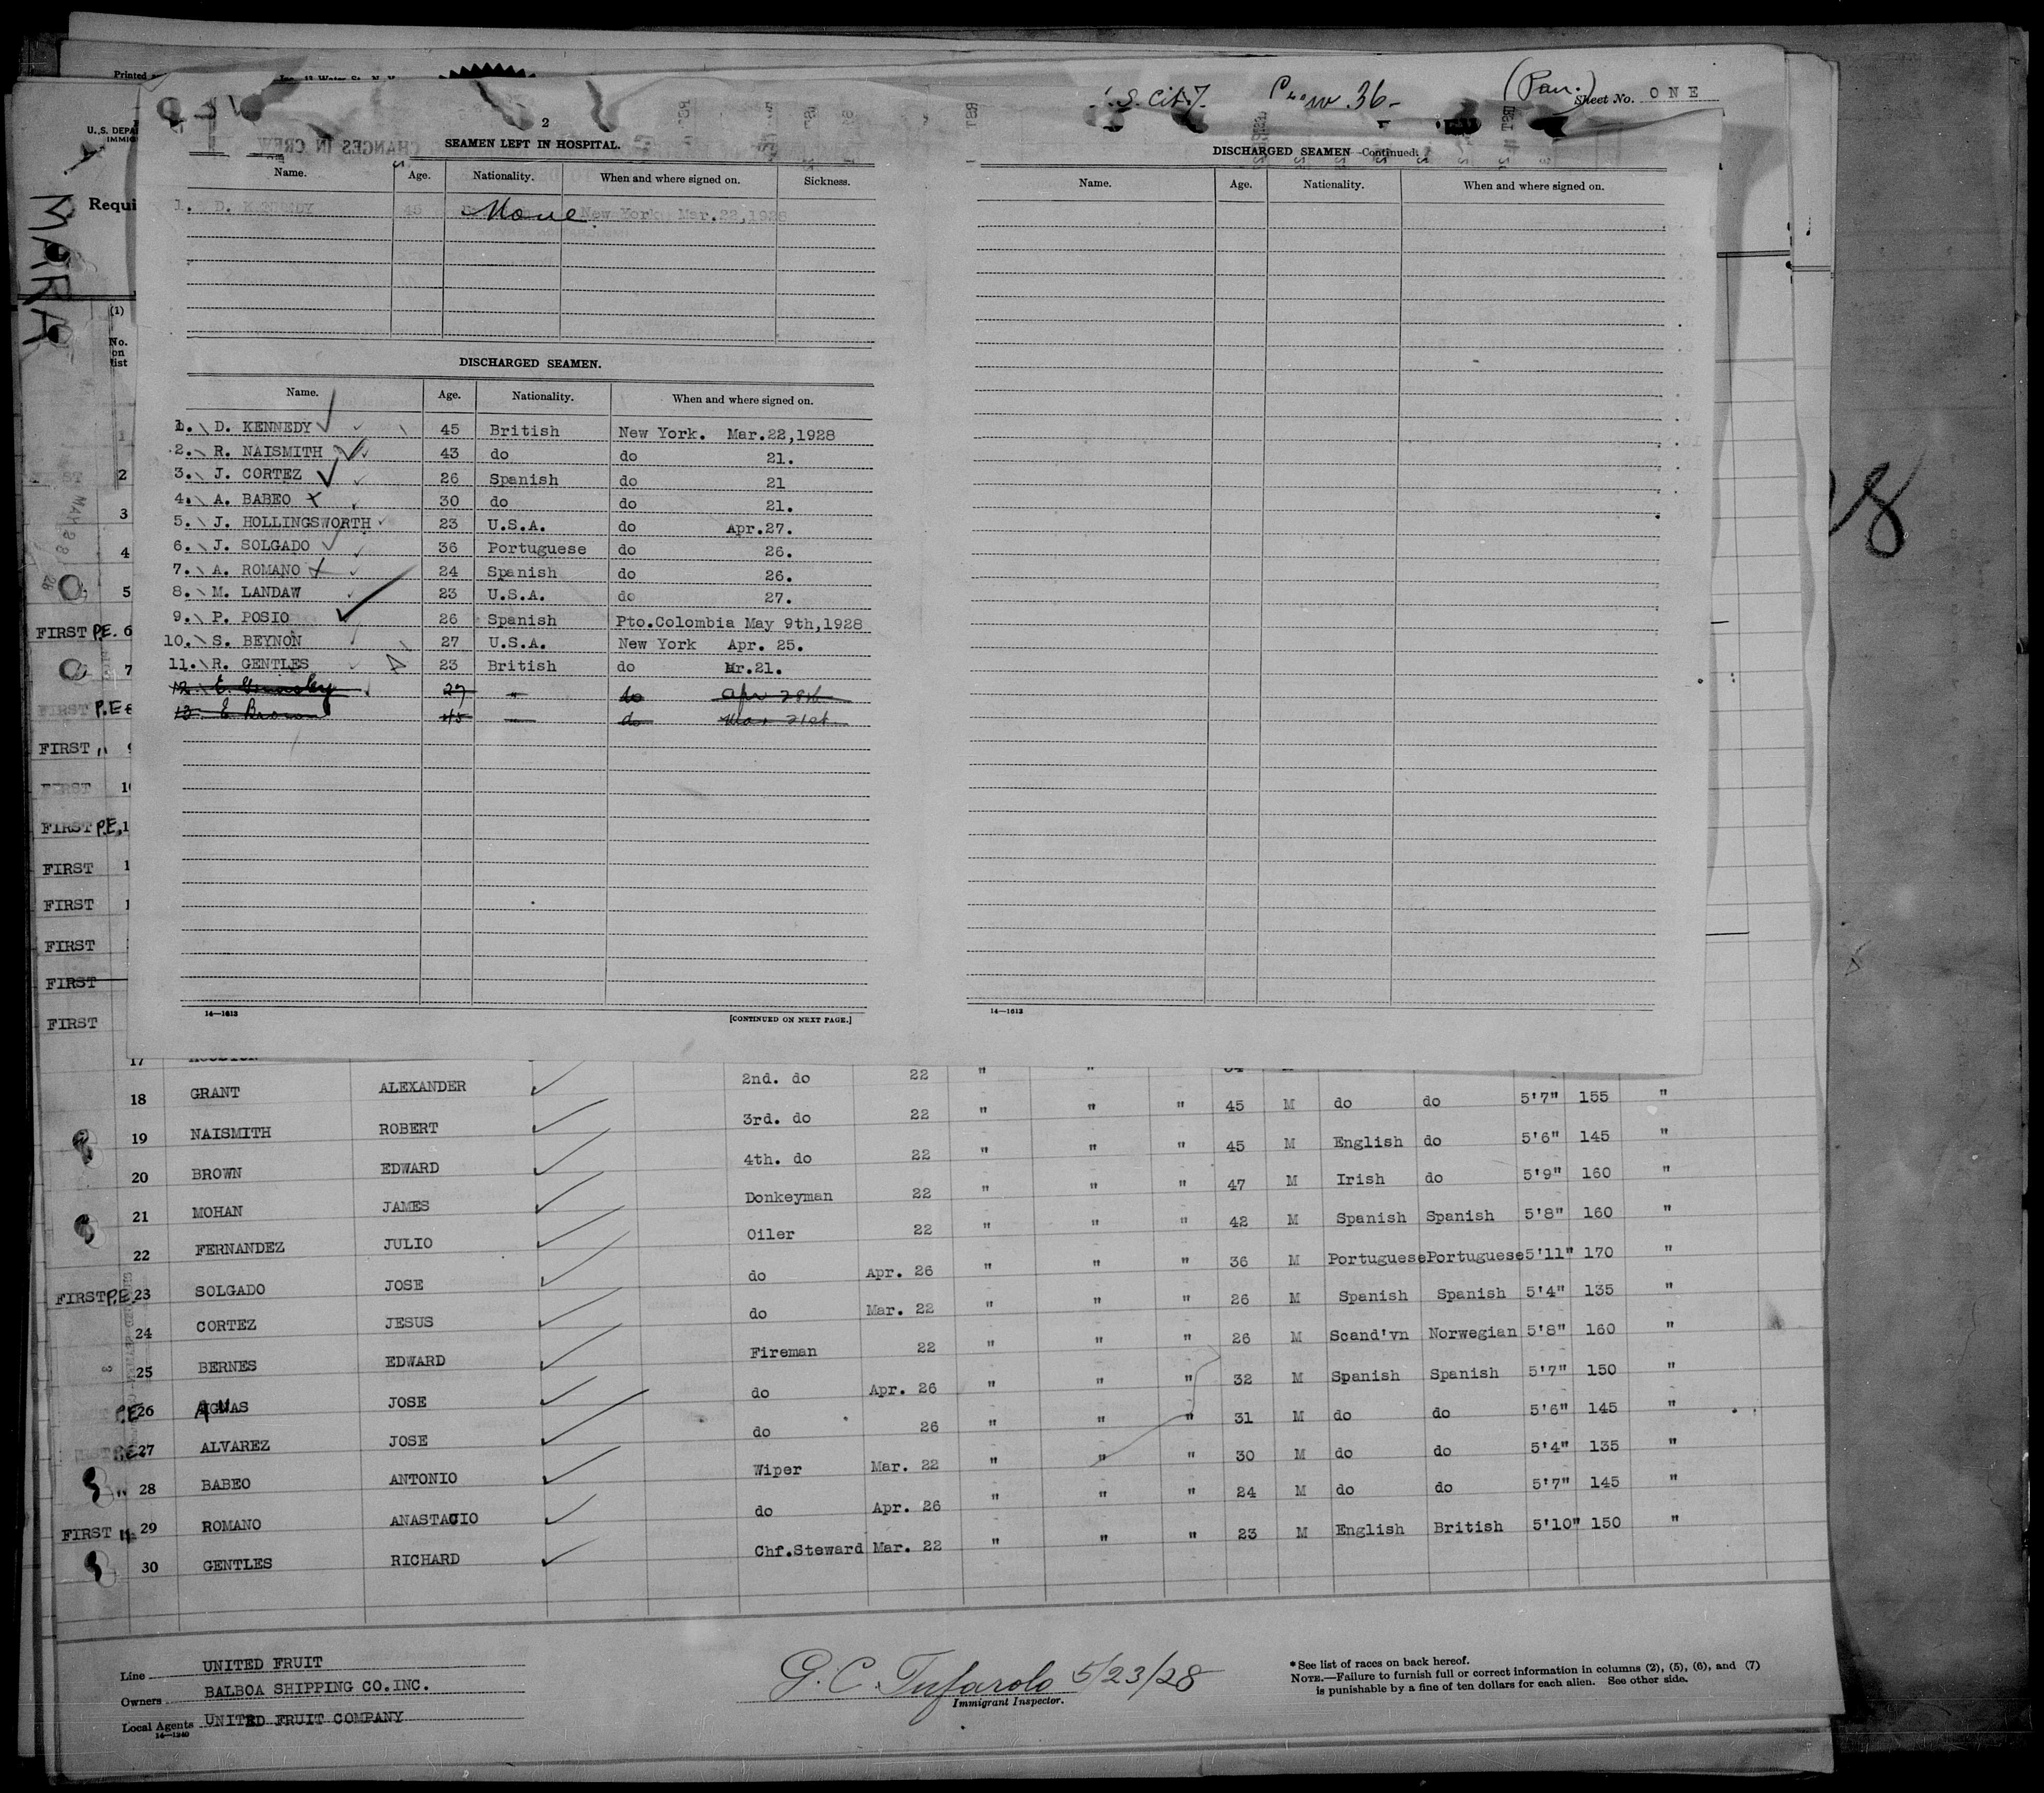 Printed
Inc., 11 Water St., N. Y.
S. Cit. 7
Crew 36-
(Pan.)
Sheet No. ONE
U.S. DEPA
IMMIG
MARA
Requi
(1)
No.
on
list
2
SEAMEN LEFT IN HOSPITAL.
Name. Age. Nationality. When and where signed on. Sickness.
1. D. KENNEDY 45 None New York Mar.22,1928
DISCHARGED SEAMEN.
Name. Age. Nationality. When and where signed on.
1. D. KENNEDY 45 British New York. Mar.22,1928
2. R. NAISMITH 43 do do 21.
3. J. CORTEZ 26 Spanish do 21
4. A. BABEO 30 do do 21.
5. J. HOLLINGSWORTH 23 U.S.A. do Apr.27.
6. J. SOLGADO 36 Portuguese do 26.
7. A. ROMANO 24 Spanish do 26.
8. M. LANDAW 23 U.S.A. do 27.
9. P. POSIO 26 Spanish Pto.Colombia May 9th,1928
10. S. BEYNON 27 U.S.A. New York Apr. 25.
11. R. GENTLES 23 British do Mr.21.
12. E. 27 " do Apr 28th
13. E Brown 45 do Mar 21st
14—1613
[CONTINUED ON NEXT PAGE.]
DISCHARGED SEAMEN—Continued.
Name. Age. Nationality. When and where signed on.
14—1613
1
2
3
4
5
FIRST P.E. 6
7
FIRST P.E
FIRST "
FIRST
FIRST P.E. 1
FIRST 1
FIRST 1
FIRST
FIRST
FIRST
17
18 GRANT ALEXANDER 2nd. do 22 " " " 45 M do do 5'7" 155 "
19 NAISMITH ROBERT 3rd. do 22 " " " 45 M English do 5'6" 145 "
20 BROWN EDWARD 4th. do 22 " " " 47 M Irish do 5'9" 160 "
21 MOHAN JAMES Donkeyman 22 " " " 42 M Spanish Spanish 5'8" 160 "
22 FERNANDEZ JULIO Oiler 22 " " " 36 M Portuguese Portuguese 5'11" 170 "
FIRST P.E. 23 SOLGADO JOSE do Apr. 26 " " " 26 M Spanish Spanish 5'4" 135 "
24 CORTEZ JESUS do Mar. 22 " " " 26 M Scand'vn Norwegian 5'8" 160 "
25 BERNES EDWARD Fireman 22 " " " 32 M Spanish Spanish 5'7" 150 "
P.E. 26 JOSE do Apr. 26 " " " 31 M do do 5'6" 145 "
27 ALVAREZ JOSE do 26 " " " 30 M do do 5'4" 135 "
" 28 BABEO ANTONIO Wiper Mar. 22 " " " 24 M do do 5'7" 145 "
FIRST " 29 ROMANO ANASTACIO do Apr. 26 " " " 23 M English British 5'10" 150 "
30 GENTLES RICHARD Chf.Steward Mar. 22 " " "
Line UNITED FRUIT
Owners BALBOA SHIPPING CO.INC.
Local Agents UNITED FRUIT COMPANY
14—1240
G. C. Tufarolo 5/23/28
Immigrant Inspector.
* See list of races on back hereof.
NOTE.—Failure to furnish full or correct information in columns (2), (5), (6), and (7)
is punishable by a fine of ten dollars for each alien. See other side.